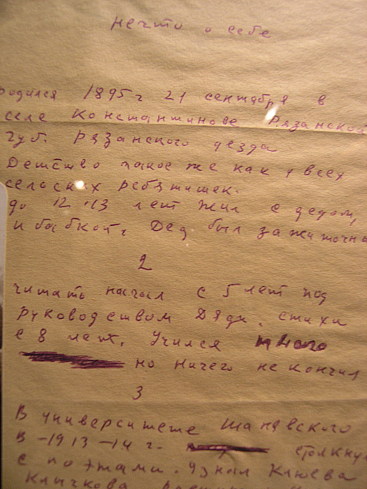 нечто о себе
родился 1895 г 21 сентября в
селе Константинове Рязанской
губ. рязанского уезда
Детство такое же как у всех
сельских ребятишек.
до 12-13 лет жил с дедом
и бабкой. Дед был зажиточн
2
читать начал с 5 лет под
руководством дяди. стихи
с 8 лет. Учился много
но ничего не кончил
3
В университете Шанявского
в -1913-14 г. столкну
с поэтами. Узнал Клюева
Клычкова